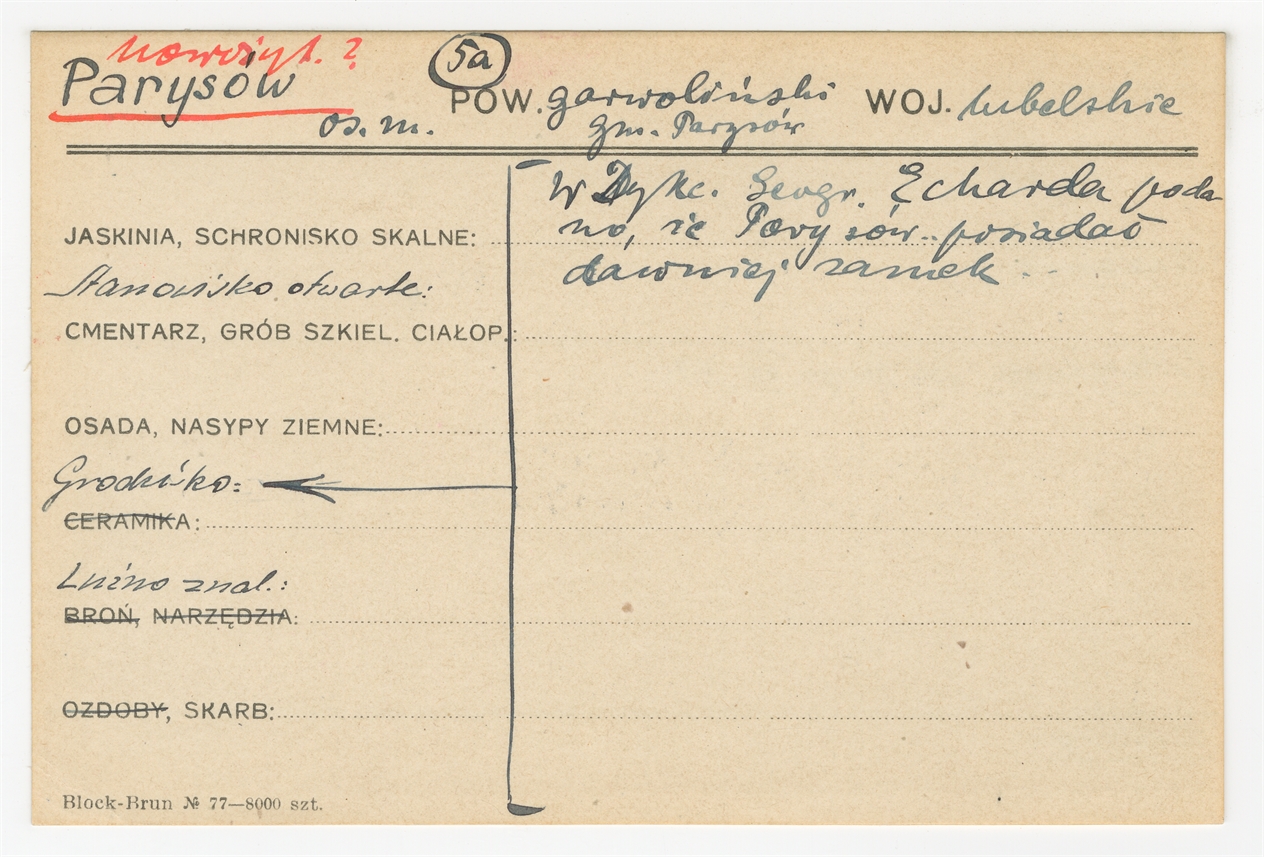 nowożyt. ?
5a
Parysów
POW. garwoliński WOJ. lubelskie
os. m. gm. Parysów
W Dykc. Geogr. Echarda poda
no, że Parysów posiadał
dawniej zamek
JASKINIA, SCHRONISKO SKALNE:
Stanowisko otwarte:
CMENTARZ, GRÓB SZKIEL. CIAŁOP.:
OSADA, NASYPY ZIEMNE:
Grodzisko:
CERAMIKA:
Luźno znal.:
BROŃ, NARZĘDZIA:
OZDOBY, SKARB:
Block-Brun № 77—8000 szt.